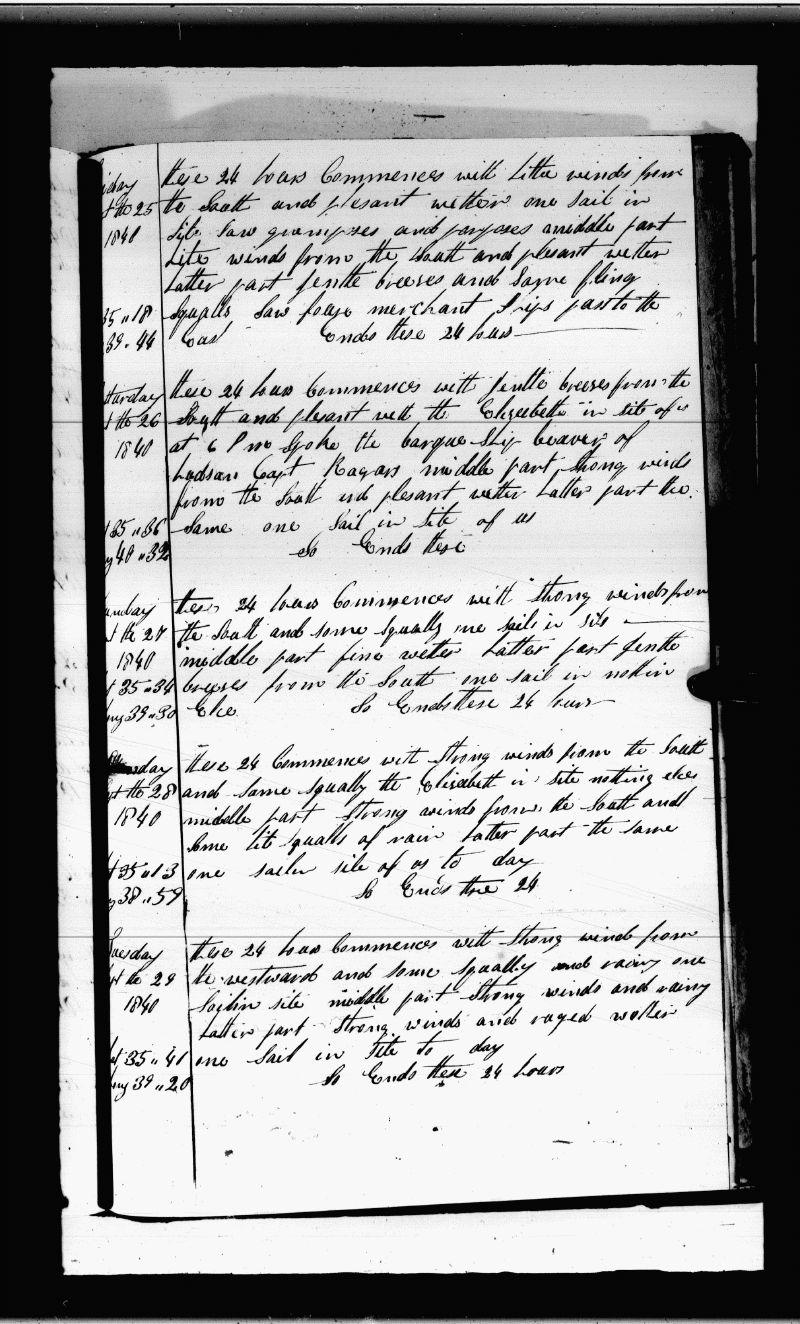 iday these 24 hours Commences with Litle winds from
t the 25 the South and plesant wether one sail in
1840 site saw grampses and porposes middle part
Lite winds from the South and plesant wether
Latter part jentle breeses and some fling
35 " 18 squalls saw foure merchant ships pas to the
39 " 44 East Ends these 24 hours
turday these 24 hours Commences with jentle breeses from the
t the 26 South and plesant with the Elizebeth in site of us
1840 at 6 P m Spoke the barque Ship beaver of
hudson Capt Rogars middle part strong winds
from the South and plesant wether Latter part the
t 35 " 36 Same one Sail in site of us
g 40 " 32 So Ends these
unday these 24 hours Commences with strong winds from
t the 27 the South and some squally one sail in site
1840 middle part fine wether Latter part jentle
t 35 " 34 breeses from the South one sail in nothin
ng 39 " 30 Else So Ends these 24 hours
day these 24 Commences with strong winds from the South
pt the 28 and some squally the Elizabeth in site nothing elce
1840 middle part strong winds from the South and
some lit squalls of rain Latter part the same
t 35 " 13 one sail in site of us to day
g 38 " 59 So Ends these 24
Tuesday these 24 hours Commences with strong wind from
pt the 29 the westward and some squally and rainy one
1840 sail in site middle part strong winds and rainy
Latter part strong winds and raged wether
at 35 " 41 one Sail in site to day
ng 39 " 20 So Ends these 24 hours